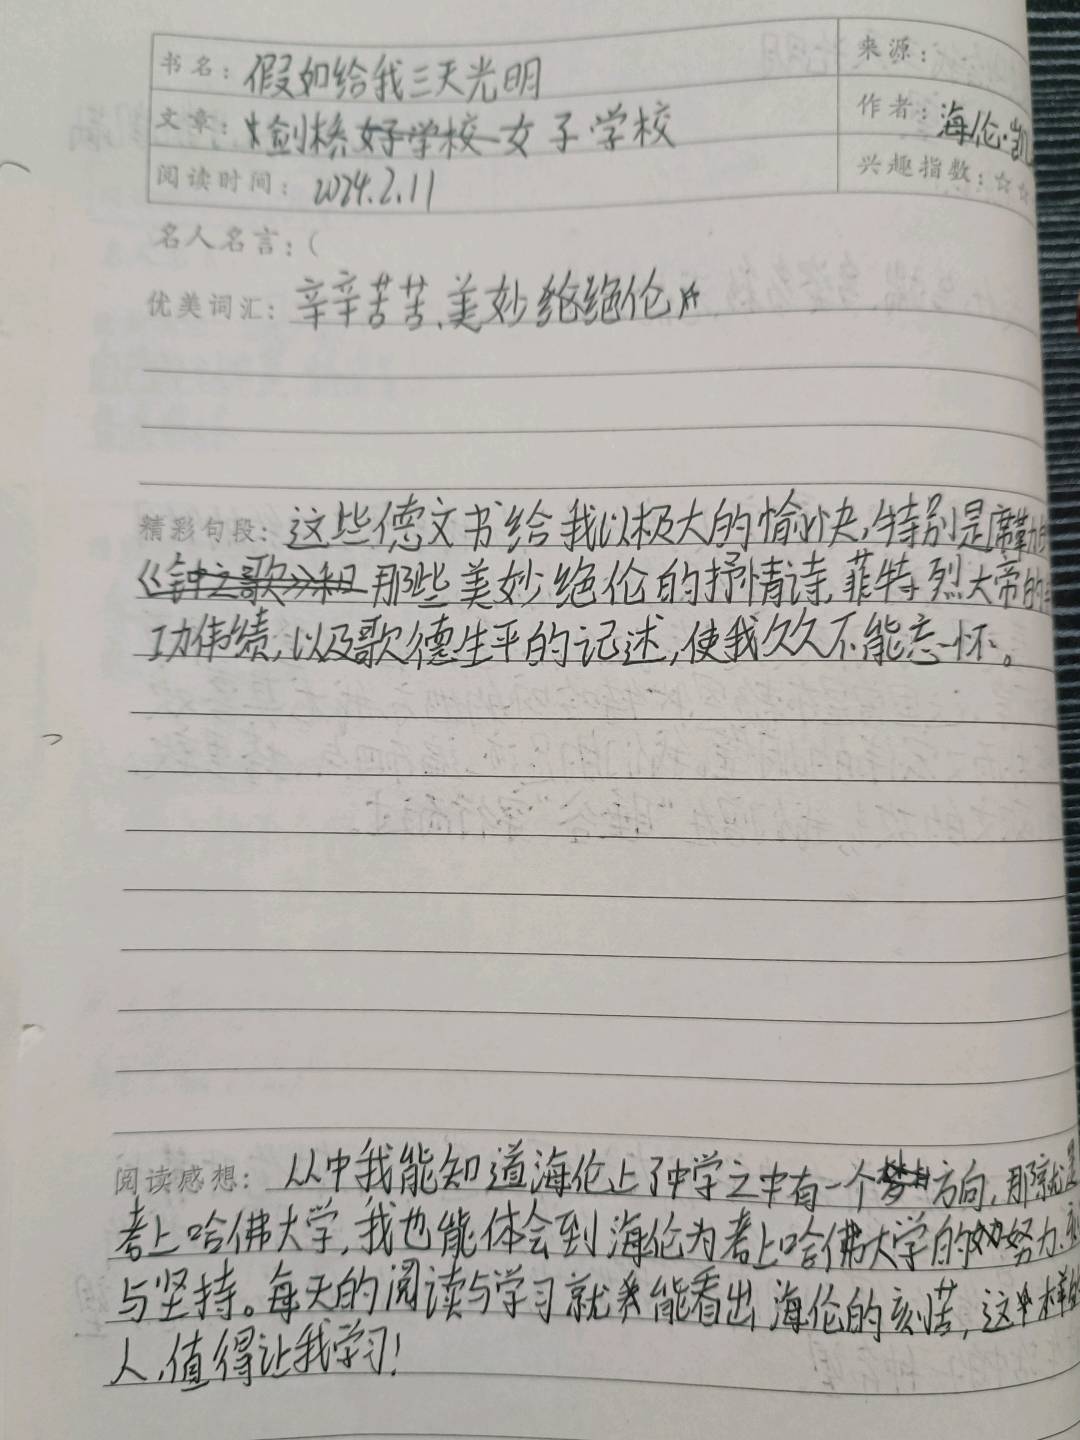 书名：假如给我三天光明
来源：
文章：剑桥女子学校
作者：海伦·凯
阅读时间：2024.2.11
兴趣指数：☆☆
名人名言：(
优美词汇：辛辛苦苦、美妙绝伦
精彩句段：这些德文书给我以极大的愉快，特别是席勒的
《钟之歌》和那些美妙绝伦的抒情诗，菲特烈大帝的
功伟绩，以及歌德生平的记述，使我久久不能忘怀。
阅读感想：从中我能知道海伦上了中学之中有一个方向，那就是
考上哈佛大学，我也能体会到海伦为考上哈佛大学的努力、
与坚持。每天的阅读与学习就能看出海伦的刻苦，这样的
人，值得让我学习！